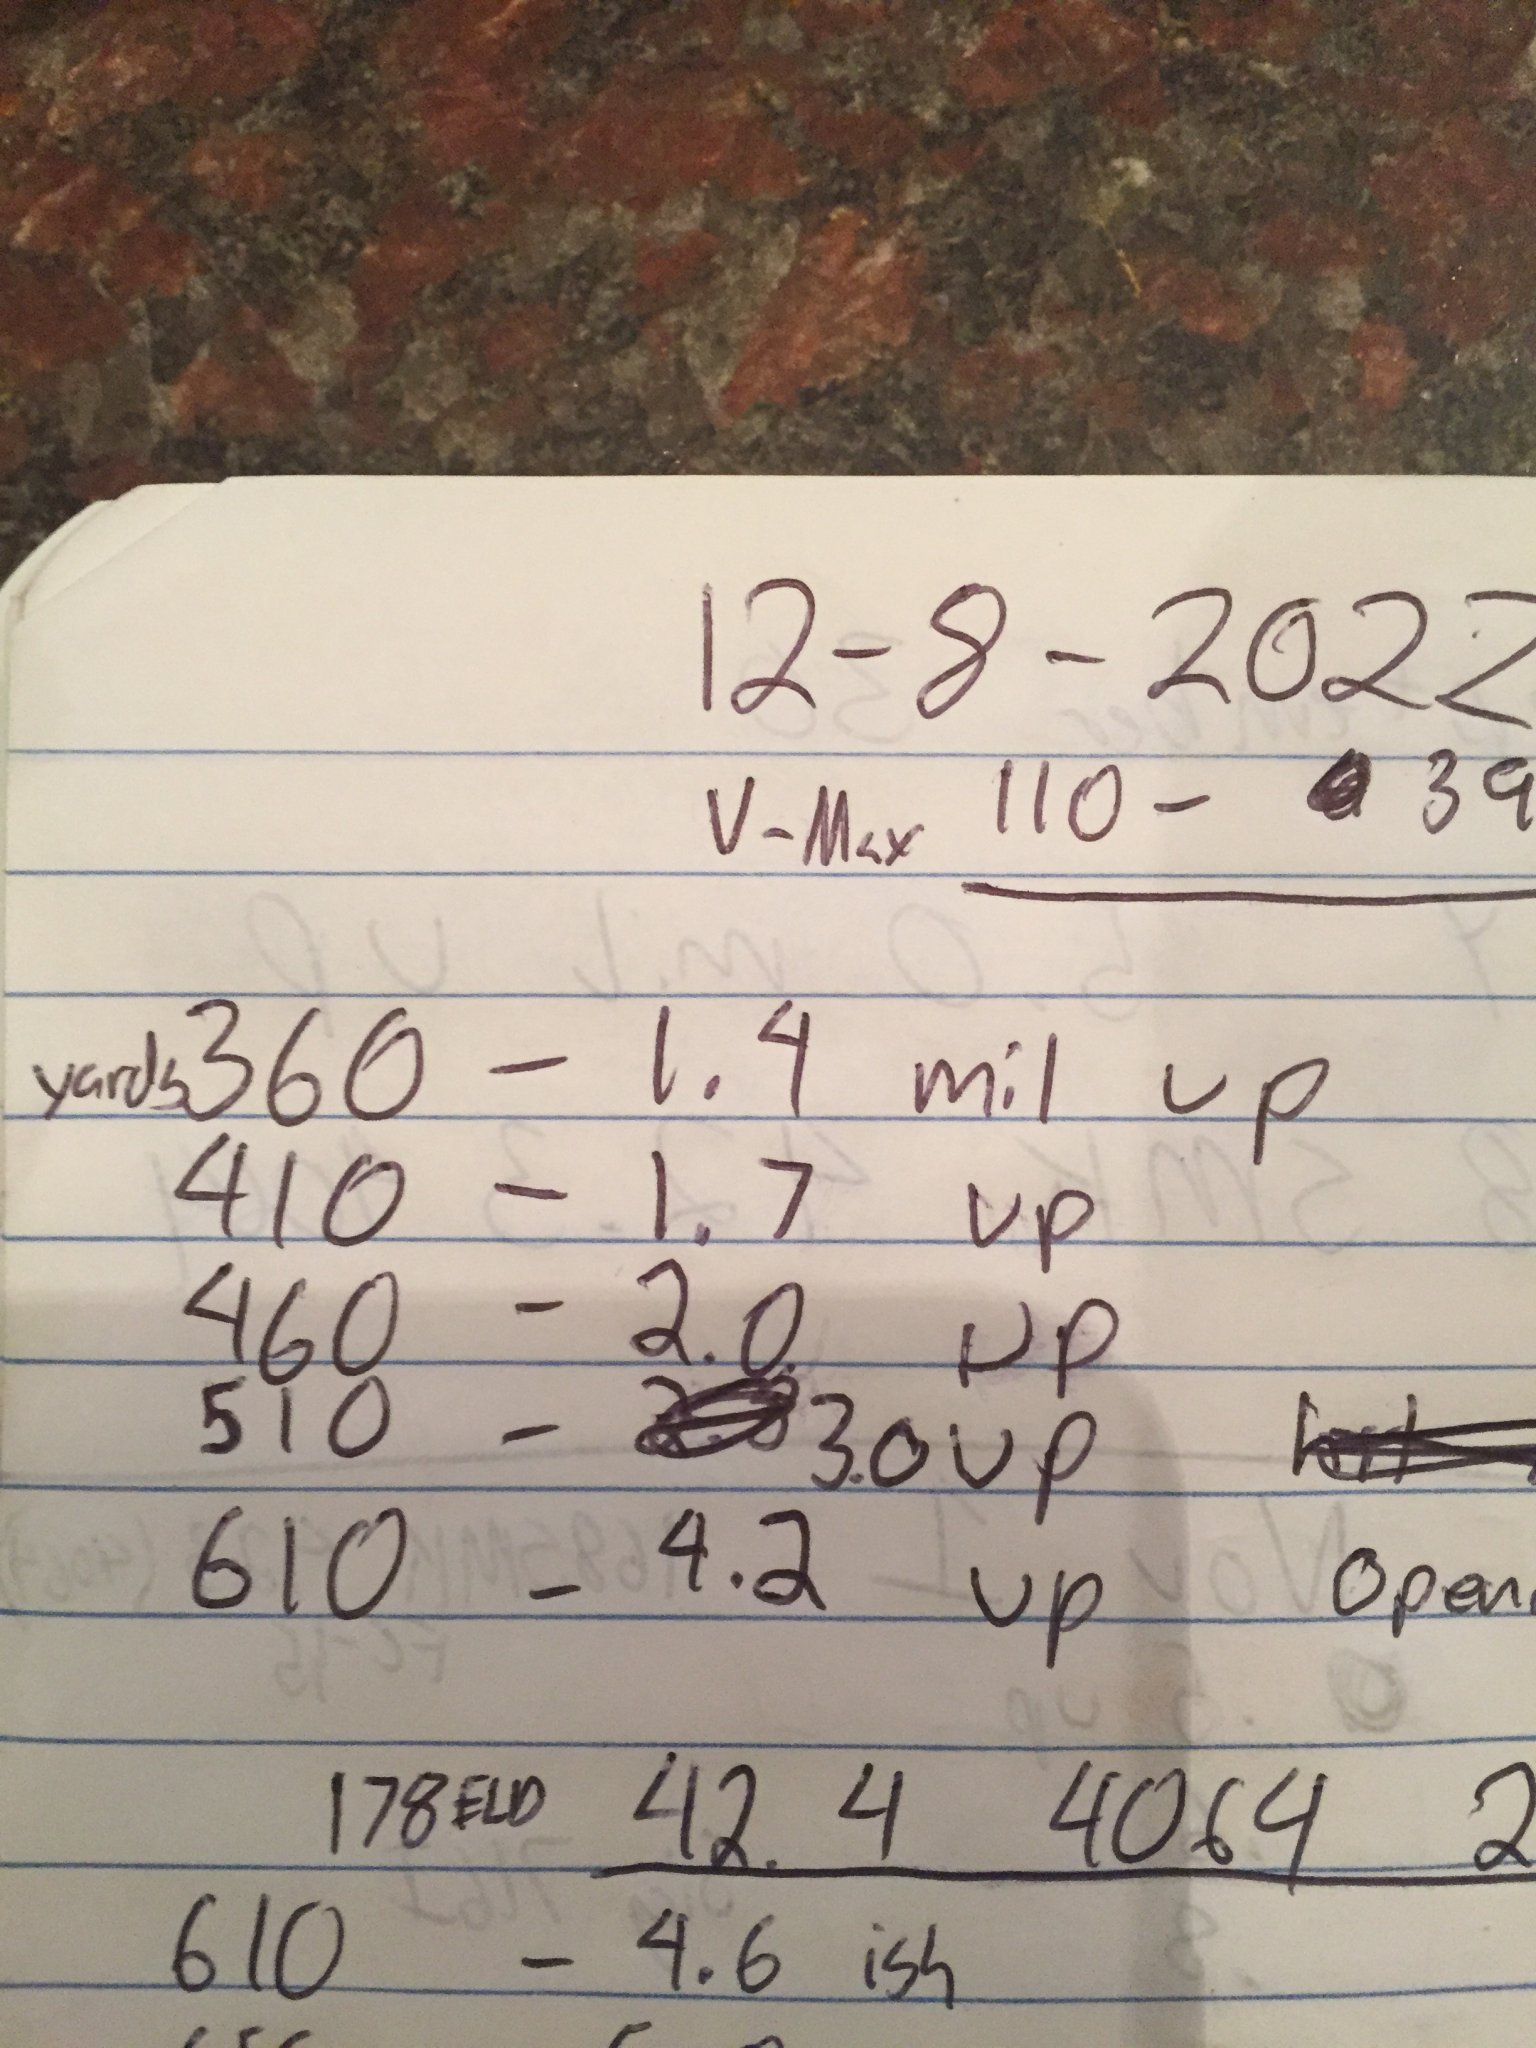 12-8-2022
V-Max 110 - 39
yards 360 - 1.4 mil up
410 - 1.7 up
460 - 2.0 up
510 - 3.0 up
610 - 4.2 up
178 ELD 42.4 4064 2
610 - 4.6 ish